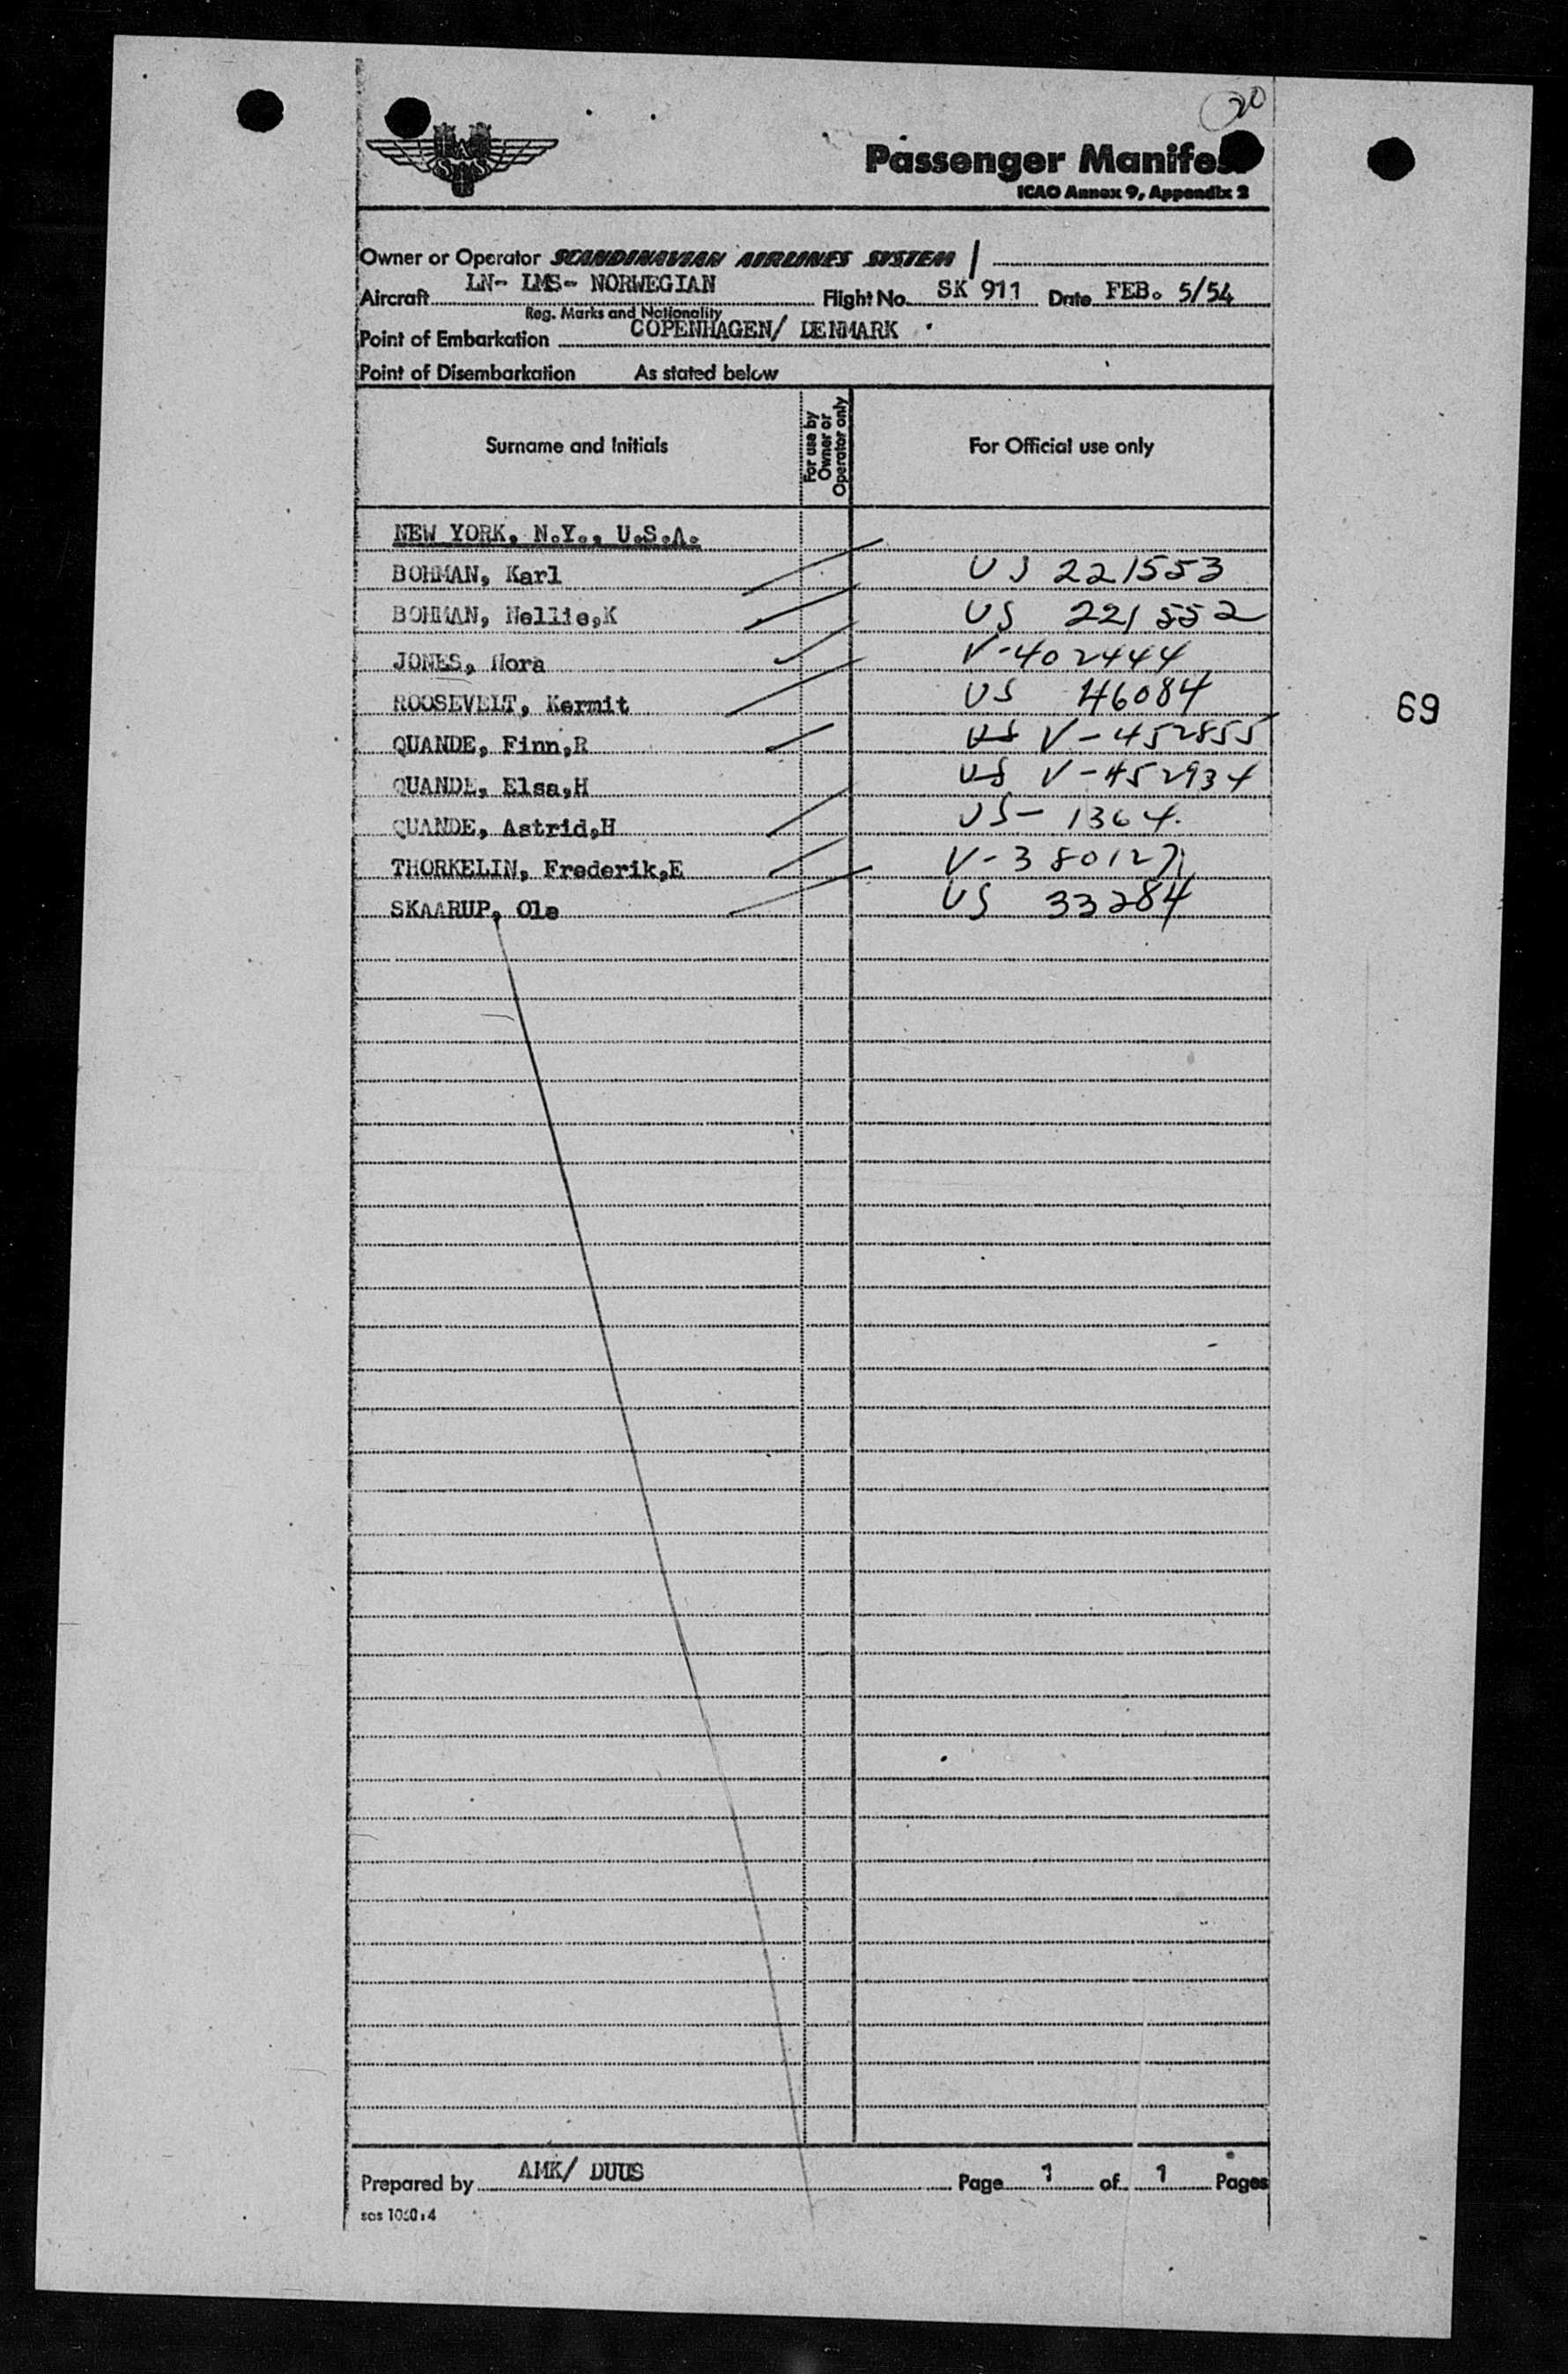 20
SAS
Passenger Manifes
ICAO Annex 9, Appendix 2
Owner or Operator SCANDINAVIAN AIRLINES SYSTEM
Aircraft LN- LMS- NORWEGIAN Flight No. SK 911 Date FEB. 5/54
Reg. Marks and Nationality
Point of Embarkation COPENHAGEN/ DENMARK
Point of Disembarkation As stated below
Surname and Initials For use by Owner or Operator only For Official use only
NEW YORK, N.Y., U.S.A.
BOHMAN, Karl US 221553
BOHMAN, Nellie,K US 221552
JONES, Nora V-402444
ROOSEVELT, Kermit US 46084
69
QUANDE, Finn,R US V-452855
QUANDE, Elsa,H US V-452934
QUANDE, Astrid,H US- 1364.
THORKELIN, Frederik,E V-380127
SKAARUP, Ole US 33284
Prepared by AMK/ DUUS Page 1 of 1 Pages